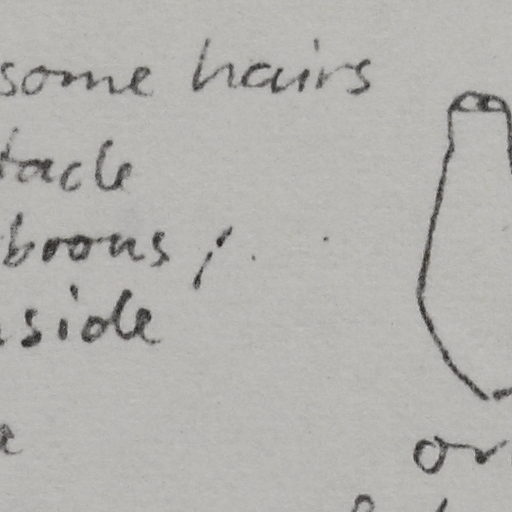 some hairs
tacle
brous;
side